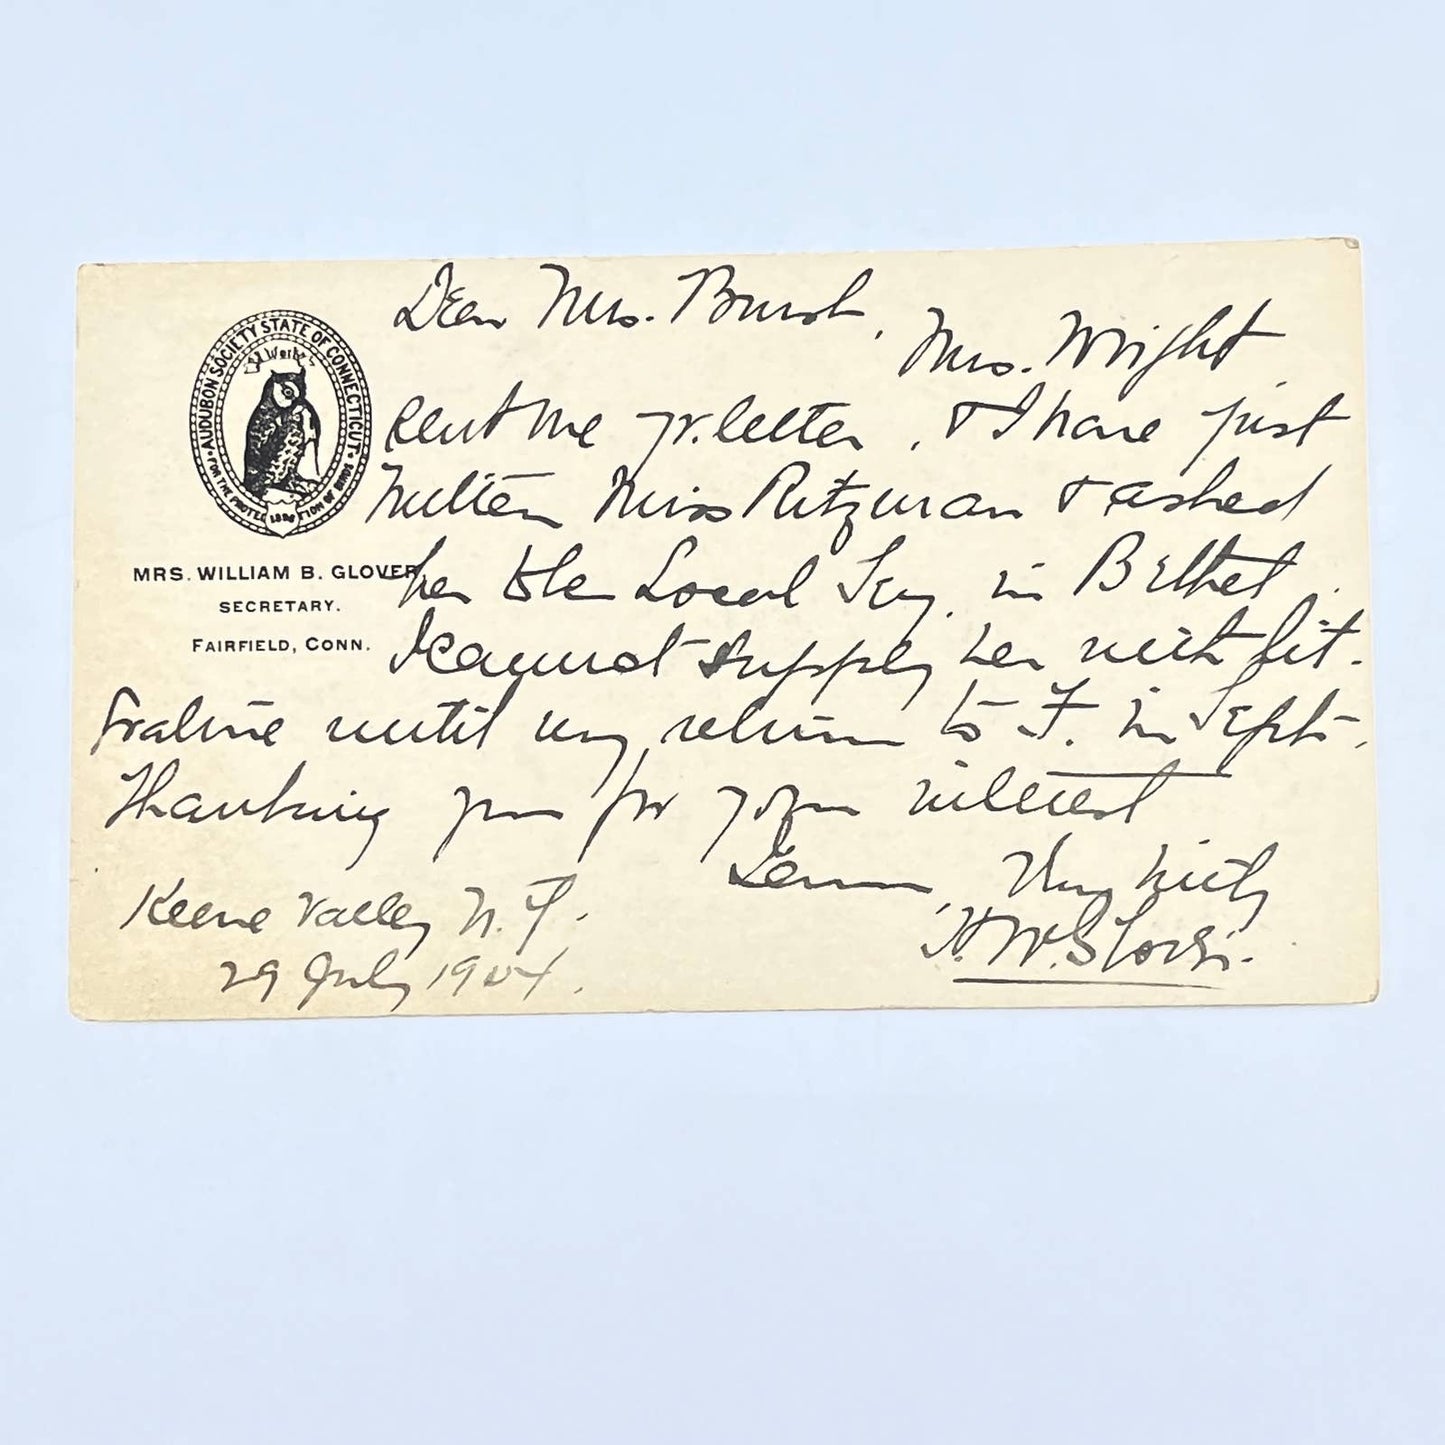 Dear Mrs. Burst,
Mrs. Wright
sent me yr. letter, & I have just
written Miss Ritzman & asked
her to be Local Secy. in Bethel.
I cannot supply her with lit-
erature until my return to F. in Sept-.
Thanking you for your interest
I am, Very truly
H. W. Glover.
Keene Valley N.Y.
29 July 1904.
AUDUBON SOCIETY STATE OF CONNECTICUT
FOR THE PROTECTION OF BIRDS
MRS. WILLIAM B. GLOVER
SECRETARY.
FAIRFIELD, CONN.